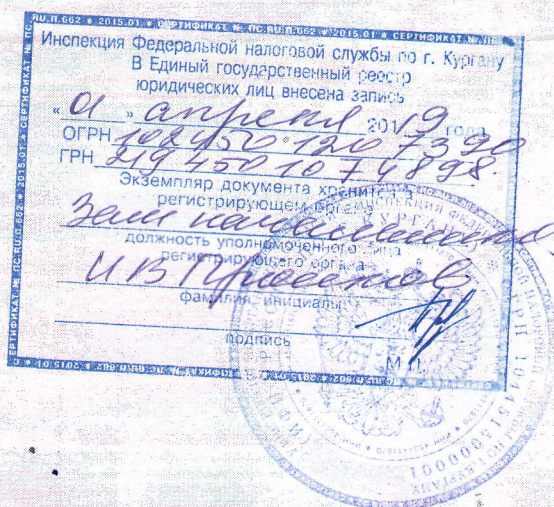 СЕРТИФИКАТ № ПС.RU.П.662 * 2015.01 * СЕРТИФИКАТ № ПС.RU.П.662 * 2015.01 * СЕРТИФИКАТ №
Инспекция Федеральной налоговой службы по г. Кургану
В Единый государственный реестр
юридических лиц внесена запись
«01» апреля 2019 года
ОГРН 1024501207390
ГРН 2194501074898
Экземпляр документа хранится в
регистрирующем органе
Зам начальника
должность уполномоченного лица
регистрирующего органа
И В
фамилия, инициалы
подпись
М.П.